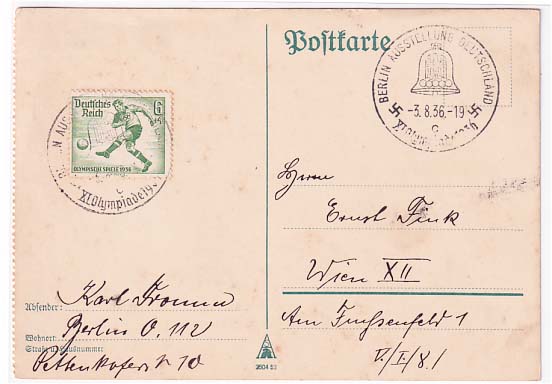 Postkarte
BERLIN AUSSTELLUNG DEUTSCHLAND
-3.8.36.-19
c
XI. Olympiade 1936
Deutsches Reich 6
OLYMPISCHE SPIELE 1936
N AUS
c
XI.Olympiade19
Herrn
Ernst Fink
Wien XII
Am Fuchsenfeld 1
V/I/8.1
Absender: Karl
Wohnort: Berlin O. 112
Straße u. Hausnummer
Pettenkoferstr 10
2604 53